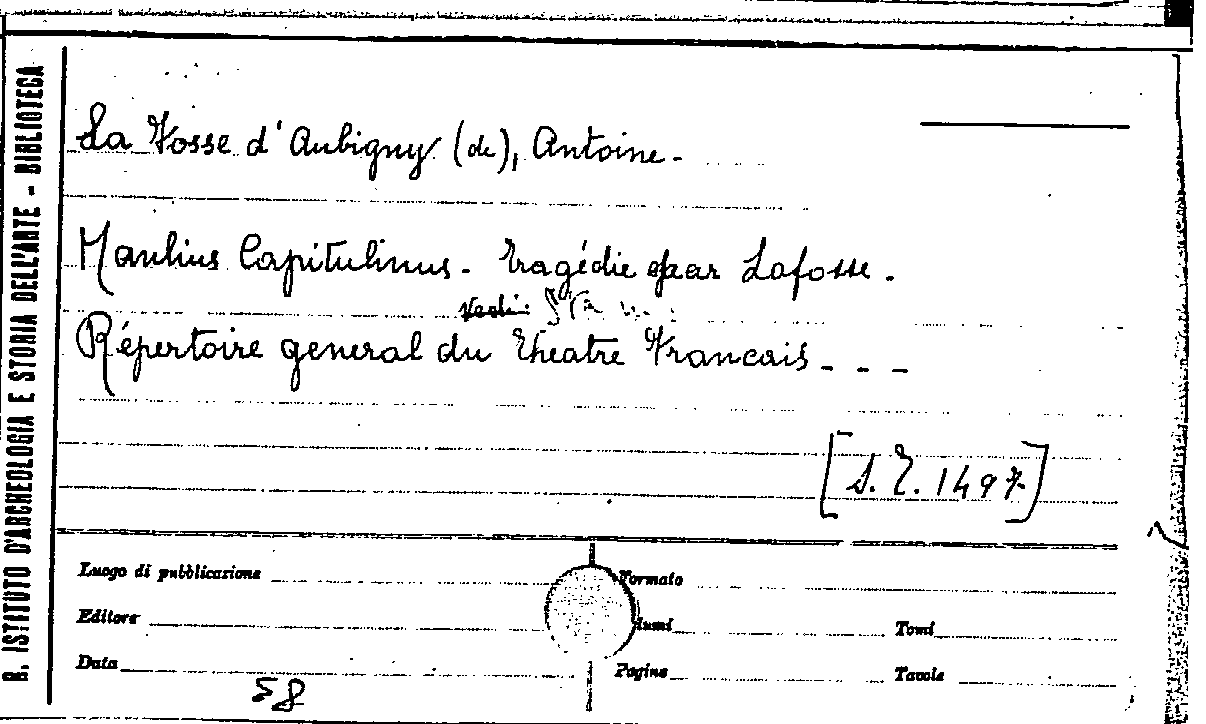 R. ISTITUTO D'ARCHEOLOGIA E STORIA DELL'ARTE - BIBLIOTECA
La Fosse d'Aubigny (de), Antoine.
Manlius Capitulinus. Tragédie par Lafosse.
Vedi:
Répertoire general du Theatre Francais - - -
[S. T. 1497]
Luogo di pubblicazione
Formato
Editore
lumi
Tomi
Data
Pagine
Tavole
58